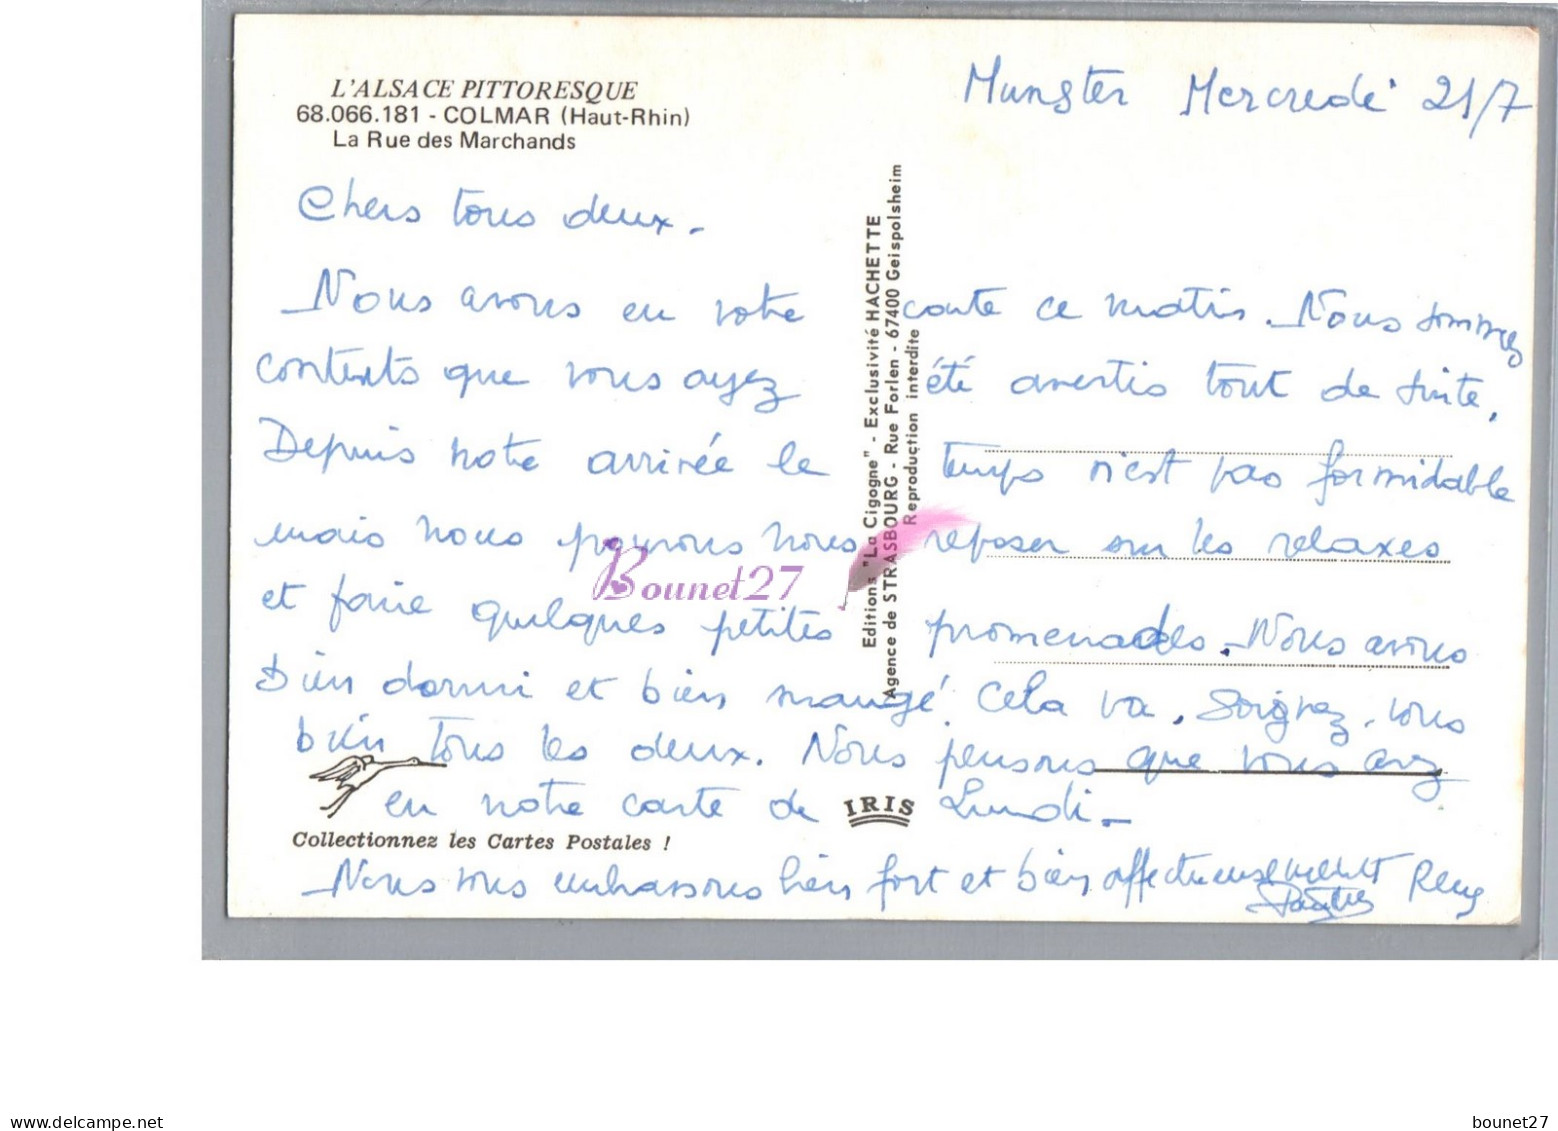 L'ALSACE PITTORESQUE
68.066.181 - COLMAR (Haut-Rhin)
La Rue des Marchands
Munster Mercredi 21/7
Chers tous deux.
Nous avons eu votre carte ce matin. Nous sommes
contents que vous ayez été avertis tout de suite.
Depuis notre arrivée le temps n'est pas formidable
mais nous pouvons nous reposer sur les relaxes
et faire quelques petites promenades. Nous avons
bien dormi et bien mangé. Cela va. Soignez-vous
bien tous les deux. Nous pensons que vous avez
eu notre carte de Lundi -
Nous vous embrassons bien fort et bien affectueusement
Editions "La Cigogne" - Exclusivité HACHETTE
Agence de STRASBOURG - Rue Forlen - 67400 Geispolsheim
Reproduction interdite
IRIS
Collectionnez les Cartes Postales !
Bounet27
www.delcampe.net
bounet27